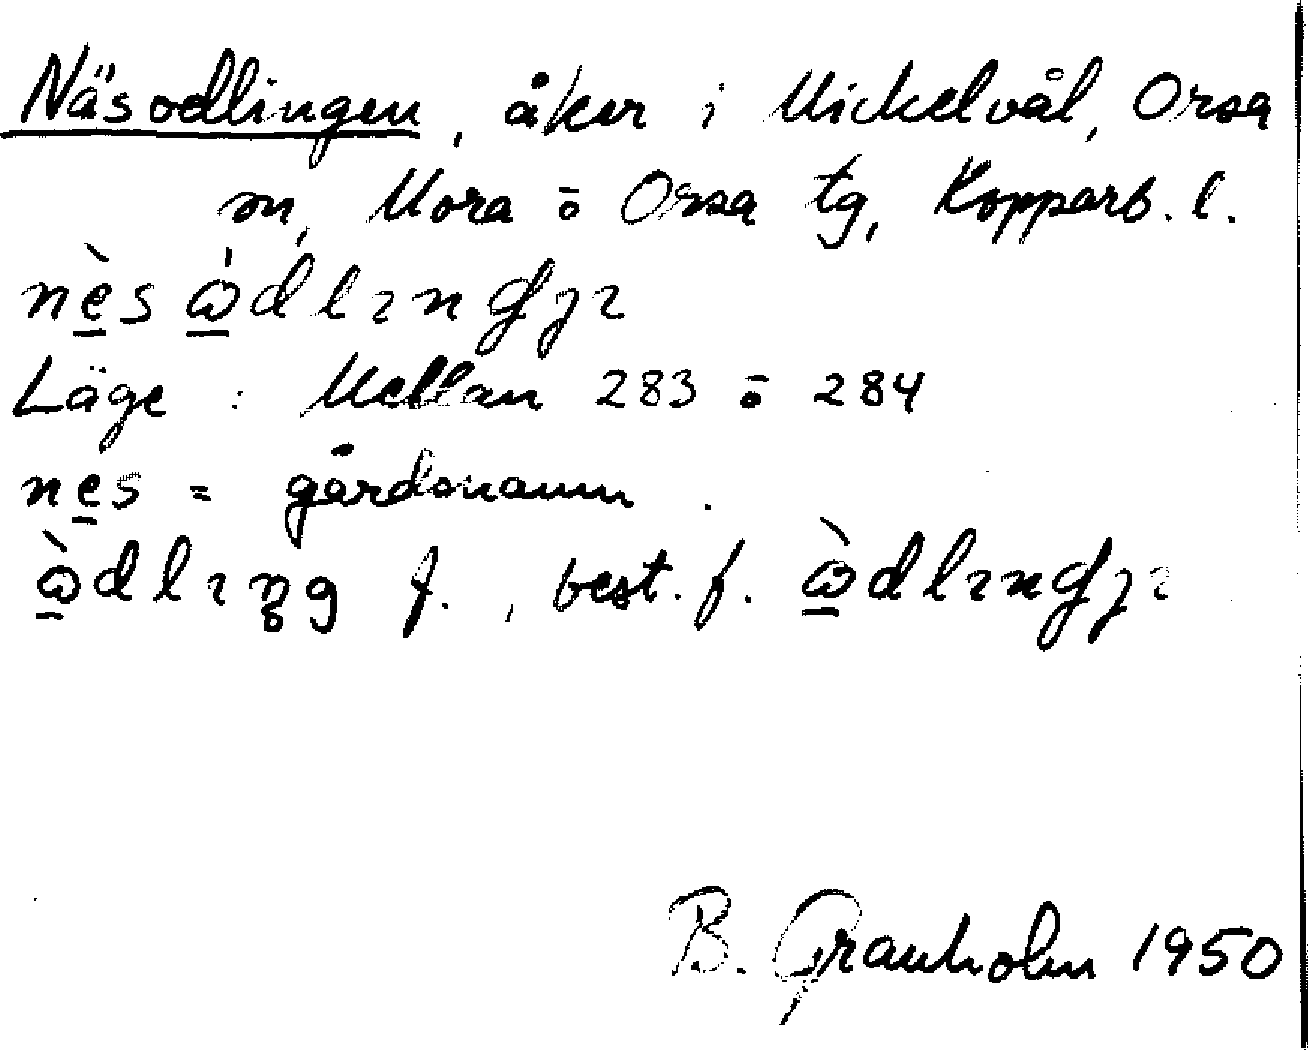 Näsodlingen, åker i Mickelvål, Orsa
sn, Mora o Orsa tg, Kopparb. l.
nès ὼdlınɠȷı
Läge : Mellan 283 o 284
nes = gårdsnamn.
ὼdlıŋg f., best. f. ὼdlınɠȷı
B. Granholm 1950